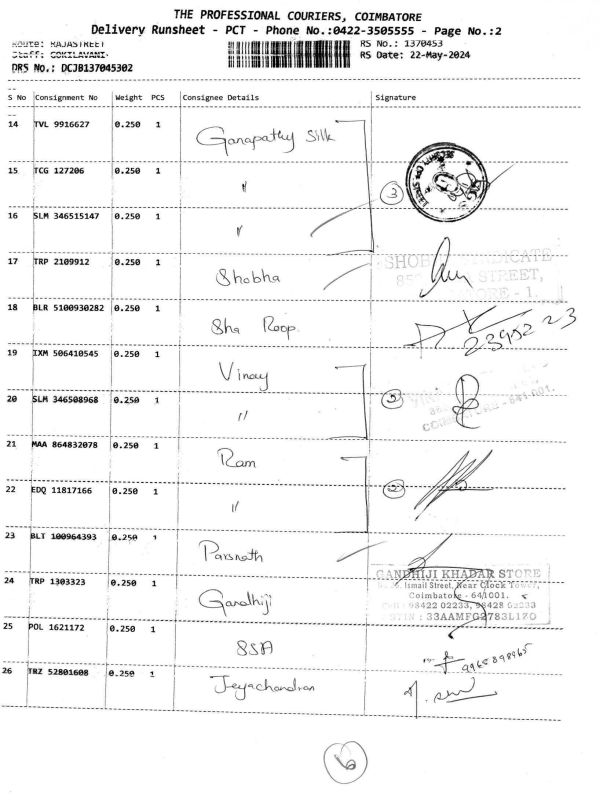 THE PROFESSIONAL COURIERS, COIMBATORE
Delivery Runsheet - PCT - Phone No.:0422-3505555 - Page No.:2
Route: RAJASTREET
RS No.: 1370453
Staff: GOKILAVANI
RS Date: 22-May-2024
DRS No.: DCJB137045302
S No Consignment No Weight PCS Consignee Details Signature
14 TVL 9916627 0.250 1 Ganapathy Silk
15 TCG 127206 0.250 1 "
3
16 SLM 346515147 0.250 1 "
17 TRP 2109912 0.250 1 Shobha
STREET,
18 BLR 5100930282 0.250 1 Sha Roop
23952 23
19 IXM 506410545 0.250 1 Vinay
20 SLM 346508968 0.250 1 "
21 MAA 864832078 0.250 1 Ram
22 EDQ 11817166 0.250 1 "
23 BLT 100964393 0.250 1 Parsnath
GANDHIJI KHADAR STORE
Ismail Street, Near Clock Tower,
24 TRP 1303323 0.250 1 Gandhiji
Coimbatore - 641001.
98422 02233, 98428 02233
33AAMFG2783L1ZO
25 POL 1621172 0.250 1 SSA
26 TRZ 52801608 0.250 1 Jeyachandran
6